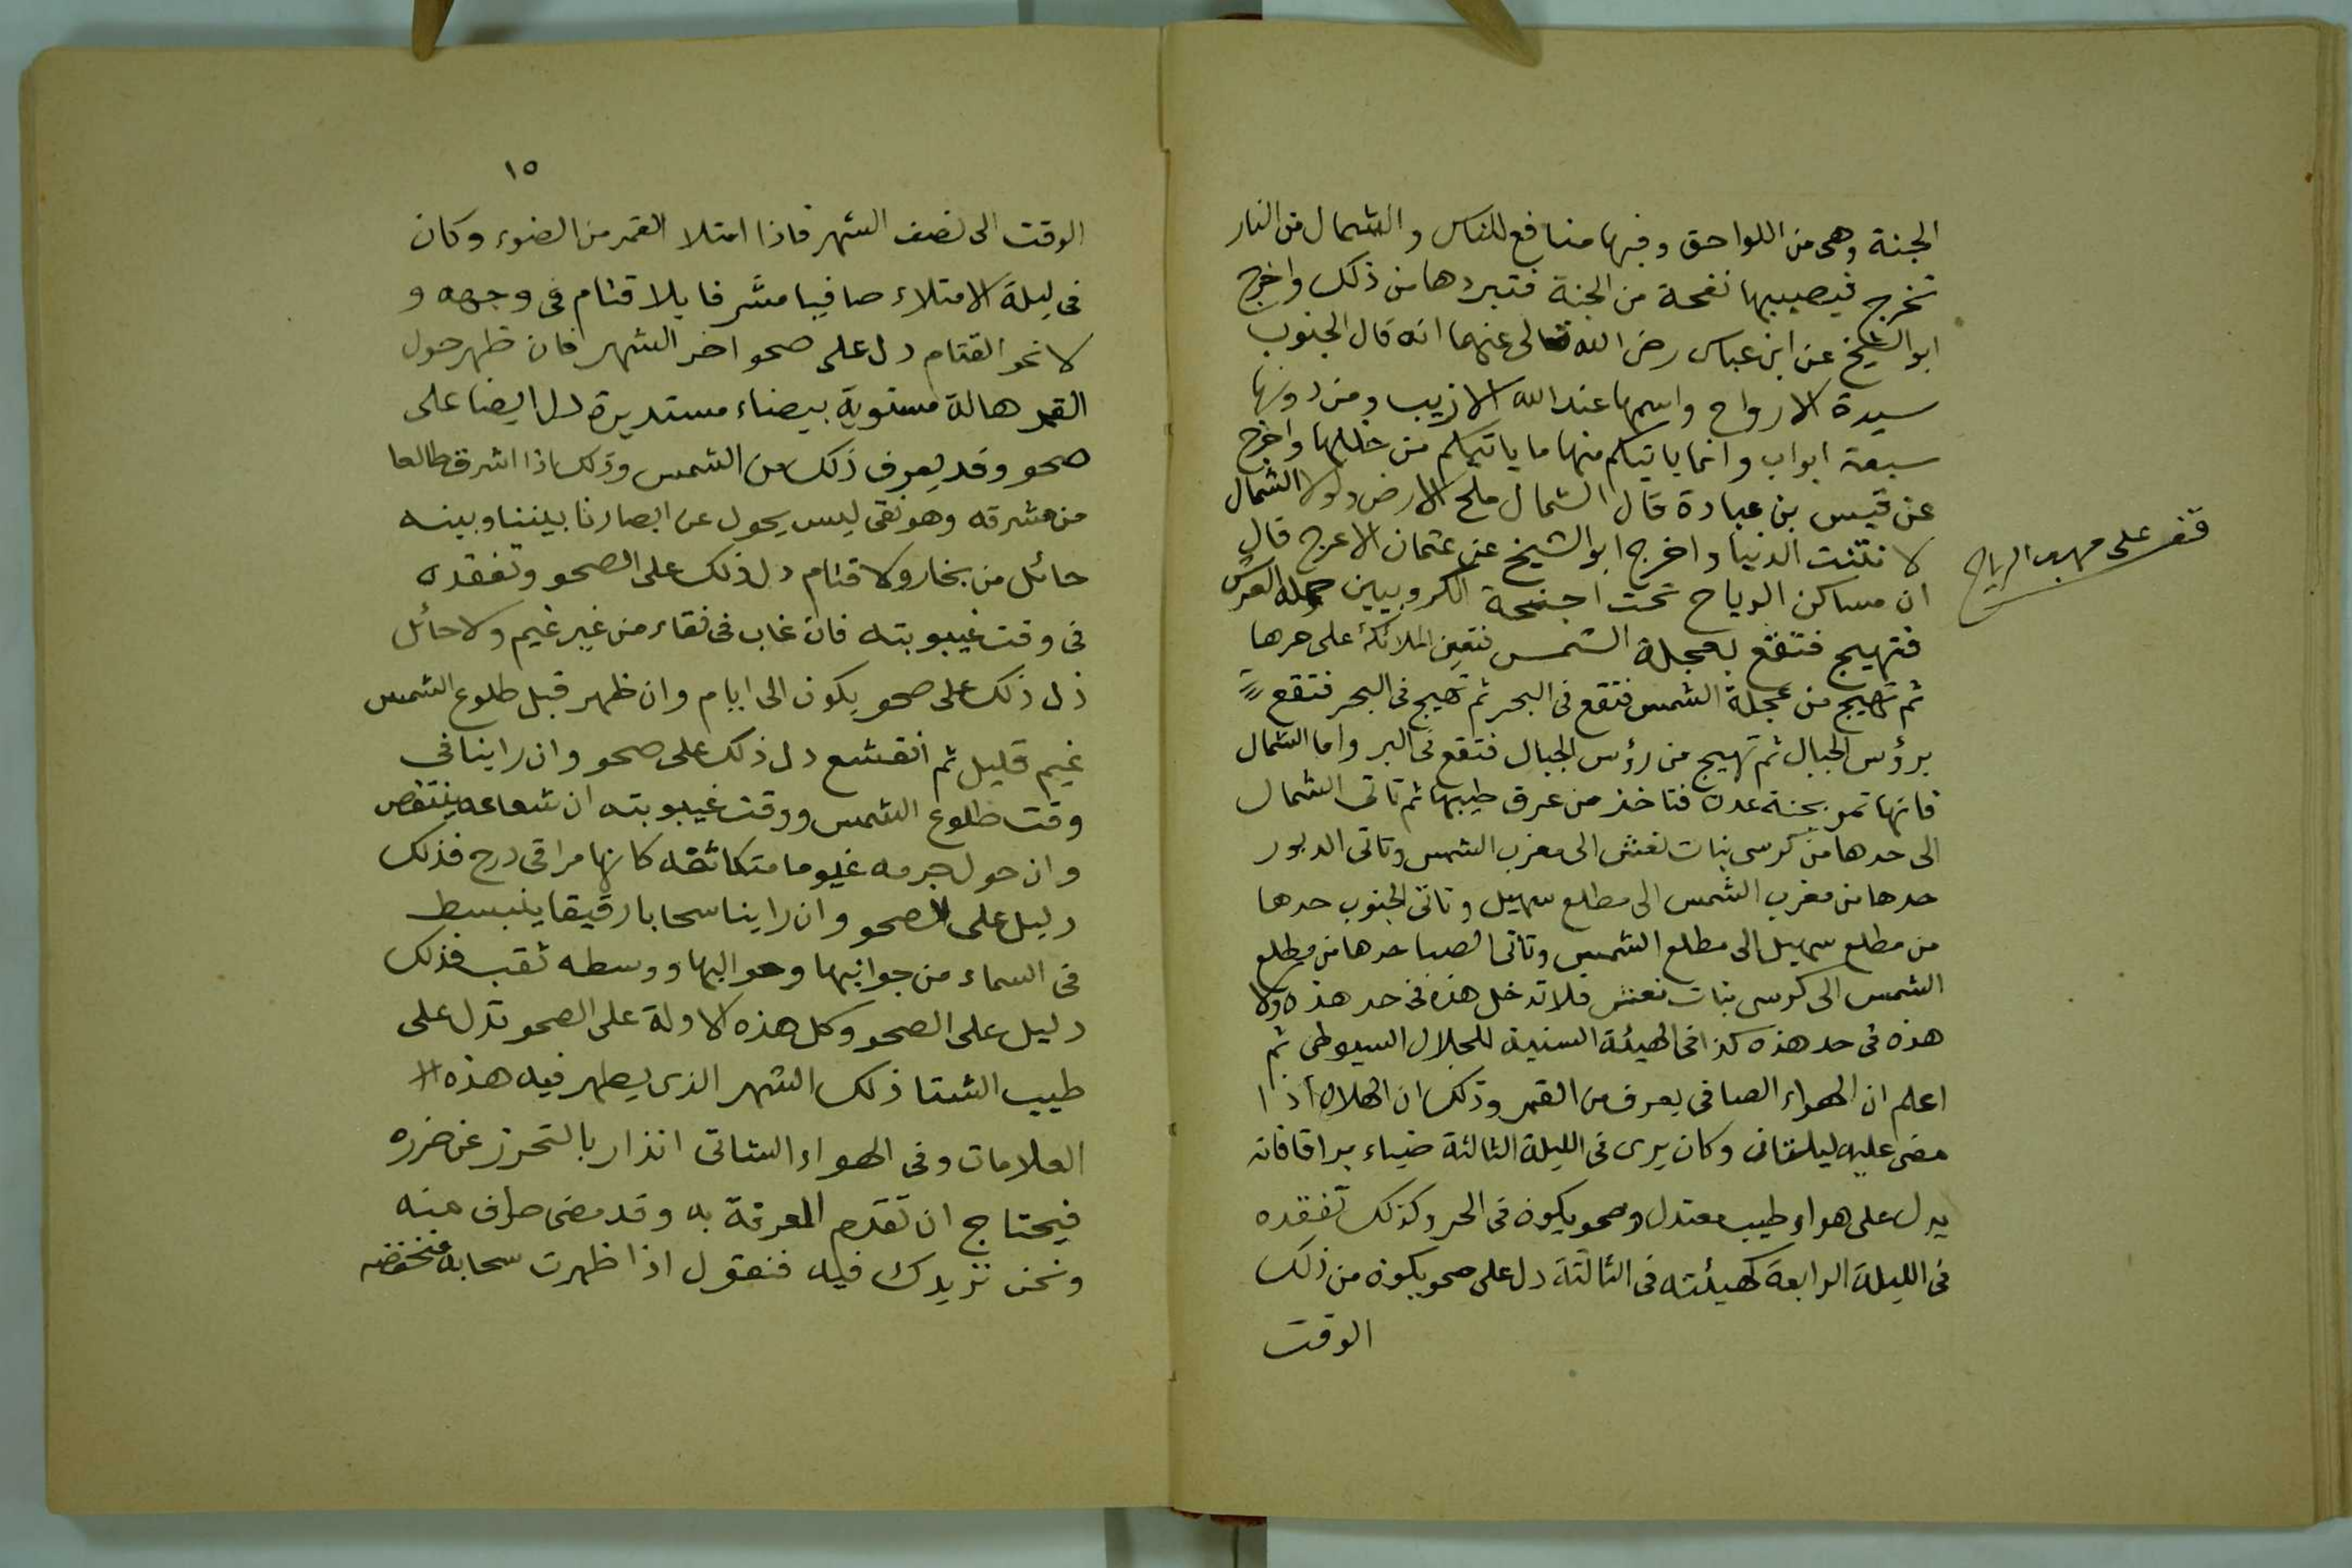 الجنة وهى من اللواحق وفيها منافع للناس والشمال من النار
تخرج فيصيبها نفحة من الجنة فتبردها من ذلك واخرج
ابو الشيخ عن ابن عباس رضى الله تعالى عنهما انه قال الجنوب
سيدة الارواح واسمها عند الله الازيب ومن دونها
سبعة ابواب وانما ياتيكم منها ما ياتيكم من خللها واخرج
عن قيس بن عبادة قال الشمال ملح الارض ولولا الشمال
لانتنت الدنيا واخرج ابو الشيخ عن عثمان الاعرج قال
ان مساكن الرياح تحت اجنحة الكروبيين حملة العرش
قف على مهب الرياح
فتهيج فتقع بعجلة الشمس فتعين الملائكة على جرها
ثم تهيج من عجلة الشمس فتقع فى البحر ثم تهيج فى البحر فتقع
برؤس الجبال ثم تهيج من رؤس الجبال فتقع فى البر واما الشمال
فانها تمر بجنة عدن فتاخذ من عرق طيبها ثم تاتى الشمال
الى حدها من كرسى بنات نعش الى مغرب الشمس وتاتى الدبور
حدها من مغرب الشمس الى مطلع سهيل وتاتى الجنوب حدها
من مطلع سهيل الى مطلع الشمس وتاتى الصبا حدها من مطلع
الشمس الى كرسى بنات نعش فلا تدخل هذه فى حد هذه ولا
هذه فى حد هذه كذا فى الهيئة السنية للجلال السيوطى ثم
اعلم ان الهواء الصافى يعرف من القمر وذلك ان الهلال اذا
مضى عليه ليلتان وكان يرى فى الليلة الثالثة ضياء براقا فانه
يدل على هواء طيب معتدل وصحو يكون فى الحر وكذلك تفقده
فى الليلة الرابعة كهيئته فى الثالثة دل على صحو يكون من ذلك
الوقت
١٥
الوقت الى نصف الشهر فاذا امتلا القمر من الضوء وكان
فى ليلة الامتلاء صافيا مشرفا بلا قتام فى وجهه و
لا نحو القتام دل على صحو اخر الشهر فان ظهر حول
القمر هالة مستوية بيضاء مستديرة دل ايضا على
صحو وقد يعرف ذلك من الشمس وذلك اذا اشرق طالعا
من مشرقه وهو نقى ليس يحول عن ابصارنا بيننا وبينه
حائل من بخار ولا قتام دل ذلك على الصحو وتفقده
فى وقت غيبوبته فان غاب فى نقاء من غير غيم ولا حائل
دل ذلك على صحو يكون الى ايام وان ظهر قبل طلوع الشمس
غيم قليل ثم انقشع دل ذلك على صحو وان راينا فى
وقت طلوع الشمس ووقت غيبوبته ان شعاعه ينتقص
وان حول جرمه غيوما متكاثفه كانها مراقى درج فذلك
دليل على الصحو وان راينا سحابا رقيقا ينبسط
فى السماء من جوانبها وحواليها ووسطه ثقب فذلك
دليل على الصحو وكل هذه الاولة على الصحو تدل على
طيب الشتا ذلك الشهر الذى يظهر فيه هذه الا
العلامات وفى الهواء الشاتى انذار بالتحرز عن ضرره
فيحتاج ان تقدم المعرفة به وقد مضى طرف منه
ونحن نزيدك فيه فنقول اذا ظهرت سحابة منخفضه